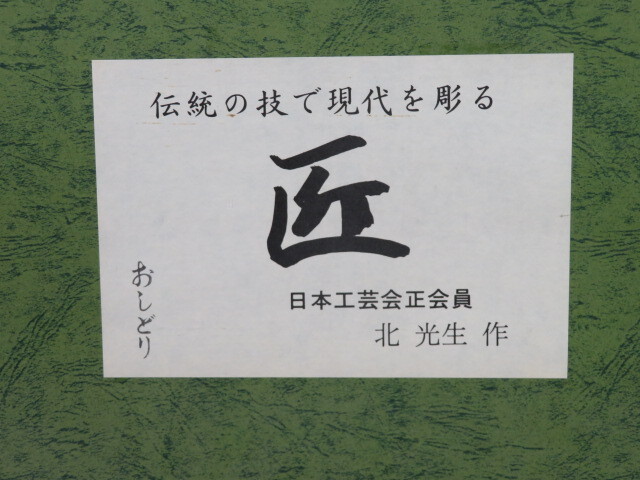 伝統の技で現代を彫る
匠
日本工芸会正会員
北 光生 作
おしどり